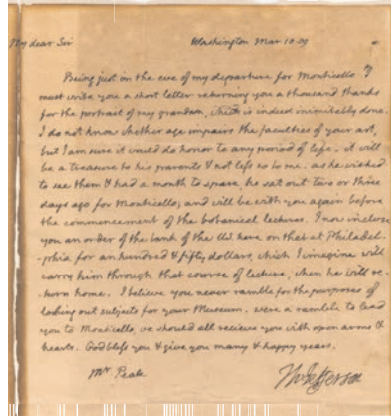 My dear Sir Washington Mar. 10. 09
Being just on the eve of my departure for Monticello I
must write you a short letter returning you a thousand thanks
for the portrait of my grandson, which is indeed inimitably done.
I do not know whether age impairs the faculties of your art,
but I am sure it would do honor to any period of life. it will
be a treasure to his parents & not less so to me. as he wished
to see them & had a month to spare, he set out two or three
days ago for Monticello, and will be with you again before
the commencement of the botanical lectures. I now inclose
you an order of the bank of the U.S. here on that at Philadel-
-phia for an hundred & fifty dollars, which I imagine will
carry him through that course of lectures, when he will re-
-turn home. I believe you never ramble for the purposes of
looking out subjects for your Museum. were a ramble to lead
you to Monticello, we should all recieve you with open arms &
hearts. God bless you & give you many & happy years.
Mr Peale Th Jefferson